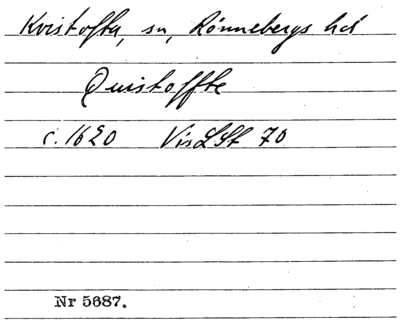 Kvistofta, sn, Rönnebergs hd
Quistoffte
c. 1620 VisLSt 70
Nr 5687.